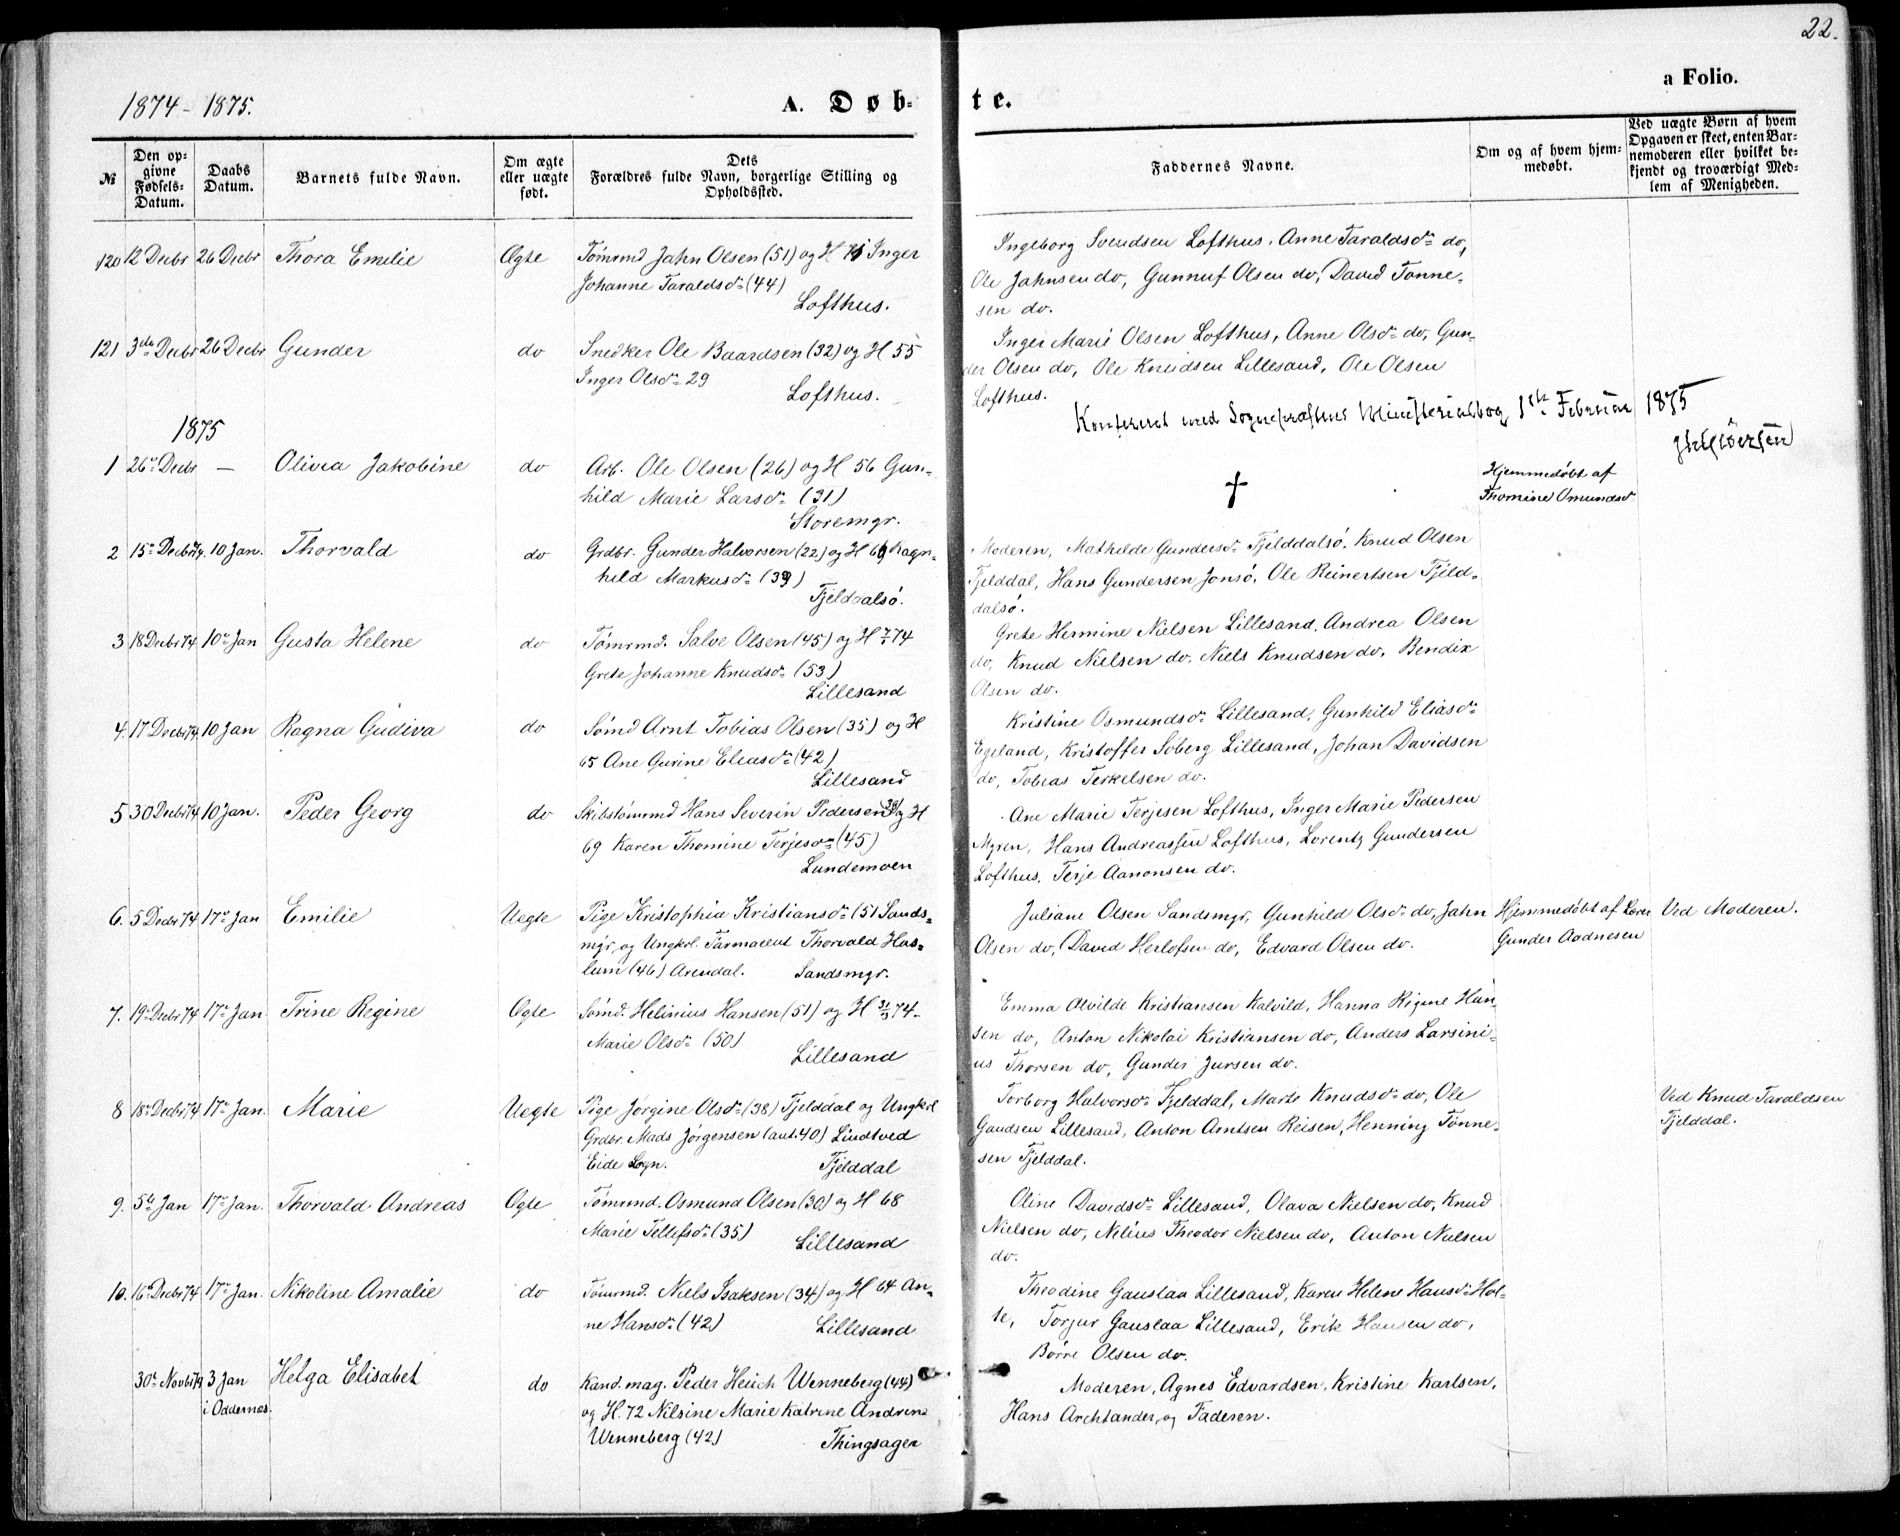 22.
a Folio.
1874 - 1875.
A. Døb-
te.
№
Den op-
givne
Fødsels-
Datum.
Daabs
Datum.
Barnets fulde Navn.
Om ægte
eller uægte
født.
Dets
Forældres fulde Navn, borgerlige Stilling og
Opholdssted.
Faddernes Navne.
Om og af hvem hjem-
medøbt.
Ved uægte Børn af hvem
Opgaven er skeet, enten Bar-
nemoderen eller hvilket be-
kjendt og troværdigt Med-
lem af Menigheden.
120 12 Decbr 26 Decbr Thora Emilie Ægte Tømrmd Jahn Olsen (51) og H Inger
Johanne Taraldsdr (44)
Lofthus.
Ingeborg Svendsen Lofthus, Anne Taraldsdr do,
Ole Jahnsen do, Gunnuf Olsen do, David Tønne-
sen do.
121 3die Decbr 26 Decbr Gunder do Snedker Ole Baardsen (32) og H 55
Inger Olsdr 29
Lofthus.
Inger Marie Olsen Lofthus, Anne Olsdr do, Gun-
der Olsen do, Ole Knudsen Lillesand, Ole Olsen
Lofthus.
Konfereret med Sognepræstens Ministerialbog 1ste Februar 1875
1875
1 26de Decbr — Olivia Jakobine do Arb. Ole Olsen (26) og H 56 Gun-
hild Marie Larsdr (31)
Storemgr.
†
Hjemmedøbt af
Thomine Omundsdr
2 15de Decbr 74. 10 Jan. Thorvald do Grdbr. Gunder Halvorsen (22) og H 69 Ragn-
hild Markusdr (39)
Fjeldalsø.
Moderen, Mathilde Gundersdr Fjelddalsø, Knud Olsen
Fjelddal, Hans Gundersen Jonsø, Ole Reinertsen Fjeld-
dalsø.
3 18 Decbr 74 10de Jan Gusta Helene do Tømrmd. Salve Olsen (45) og H 7/1 74
Grete Johanne Knudsdr (53)
Lillesand
Grete Hermine Nielsen Lillesand, Andrea Olsen
do, Knud Nielsen do, Niels Knudsen do, Bendix
Olsen do.
4. 17 Decbr 74. 10 Jan Ragna Gudiva do Sømd Arnt Tobias Olsen (35) og H
65 Ane Gurine Eliasdr (42)
Lillesand
Kristine Osmundsdr Lillesand, Gunhild Eliasdr
Egeland, Kristoffer Søberg Lillesand, Johan Davidsen
do, Tobias Terkelsen do.
5 30 Decbr 74 10 Jan. Peder Georg do Skibstømrmd Hans Severin Pedersen og H
69 Karen Thomine Terjesdr (45)
Lundemoen
Ane Marie Terjesen Lofthus, Inger Marie Pedersen
Myren, Hans Andreassen Lofthus, Lorentz Gundersen
Lofthus, Terje Aanonsen do.
6. 5 Decbr 74 17de Jan Emilie Uegte Pige Kristophia Kristiansdr (51 Sands-
mgr, og Ungkrl. Farmaceut Thorvald Has-
lum (46) Arendal. Sandsmgr.
Juliane Olsen Sandsmgr, Gunhild Olsdr do, Jahn
Olsen do, David Herlofsen do, Edvard Olsen do.
Hjemmedøbt af Lærer
Gunder Aadnesen
Ved Moderen.
7. 19de Decbr 74 17de Jan Trine Regine Ægte Sømd. Helinius Hansen (51) og H 31/3 74
Marie Olsdr (50)
Lillesand
Emma Alvilde Kristiansen Kalvild, Hanna Regine Han-
sen do, Anton Nikolai Kristiansen do, Anders Larsini-
us Thorsen do, Gunder Jursen do.
8 18de Decbr 74 17de Jan. Marie Uegte Pige Jørgine Olsdr (38) Fjelddal og Ungkrl
Grdbr. Mads Jørgensen (ant. 40) Lindtved
Eide Sogn. Fjelddal
Torborg Halvorsdr Fjelddal, Marte Knudsdr do, Ole
Gundsen Lillesand, Anton Arntsen Reisen, Henning Tønne-
sen Fjelddal.
Ved Knud Taraldsen
Fjelddal.
9. 5te Jan 17de Jan. Thorvald Andreas Ægte Tømrmd. Osmund Olsen (30) og H 68
Marie Tellefsdr (35)
Lillesand
Oline Davidsdr Lillesand, Olava Nielsen do, Knud
Nielsen do, Nelius Theodor Nielsen do, Anton Nielsen
do.
10. 16de Decbr 74 17de Jan. Nikoline Amalie do Tømrmd. Niels Isaksen (34) og H 64 An-
ne Hansdr (42)
Lillesand
Theodine Gauslaa Lillesand, Karen Helene Hansdr Hol-
te, Torjur Gauslaa Lillesand, Erik Hansen do,
Børre Olsen do.
30te Novbr 74 3 Jan Helga Elisabet do Kand. mag. Peder Heuch Wenneberg (44)
i Oddernes. og H. 72 Nilsine Marie Katrine Andrine
Wenneberg (42) Thingsager
Moderen, Agnes Edvardsen, Kristine Karlsen,
Hans Archtander, og Faderen.